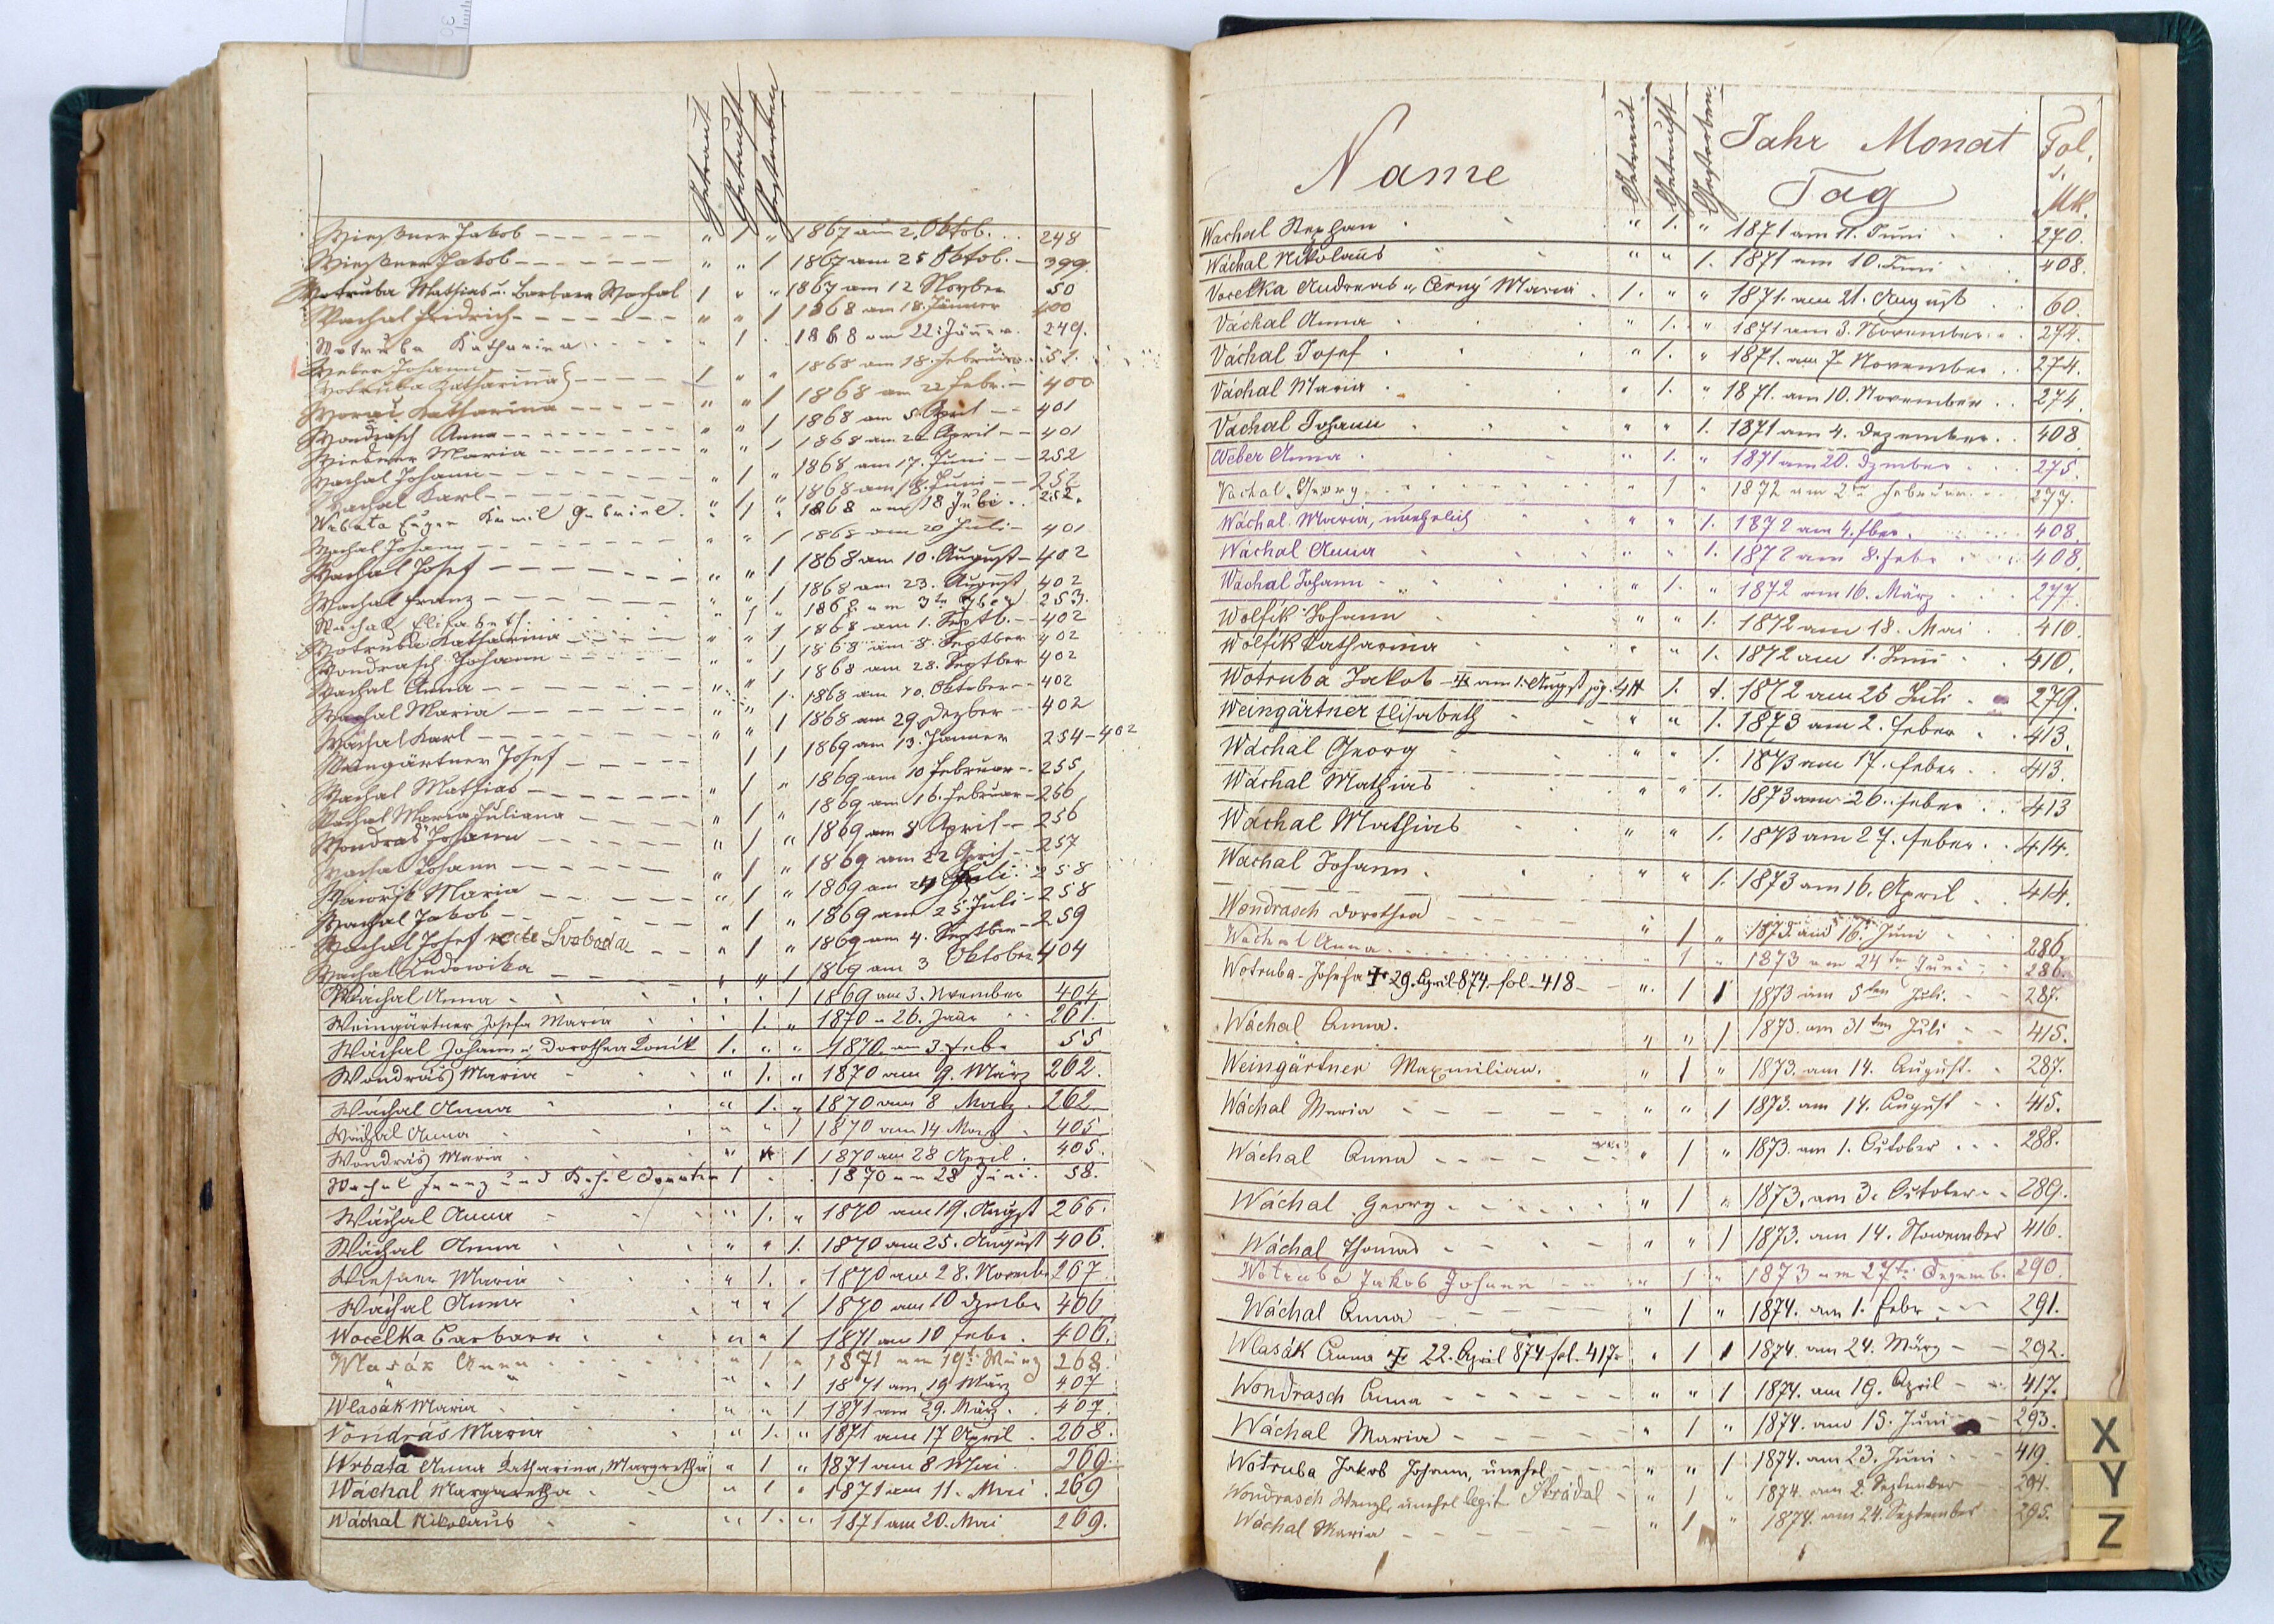 Getraut Getauft Gestorben
Wießner Jakob - - - - - " 1 " 1867 am 2. Oktob. 248
Wießner Jakob - - - - - " " 1 1867 am 25 Oktob. - 399
Wotruba Mathias u. Barbara Wachal 1 " " 1867 am 12 Novber 50
Wachal Fridrich - - - - - " " 1 1868 am 18. Jänner 400
Wotruba Katharina " 1 . 1868 am 22. Jänner 249.
Weber Johann
Wotruba Katharina } - - - - 1 " " 1868 am 18. Februar 51.
Katharina - - - - " " 1 1868 am 22 Febr. - 400
Wondrasch Anna - - - - " " 1 1868 am 5. April - - 401
Wießner Maria - - - - " " 1 1868 am 20 April - - 401
Wachal Johann - - - - " 1 " 1868 am 17. Juni - - 252
Wachal Karl - - - - " 1 " 1868 am 18. Juni - - 252
Wrbata Eugen Kamil Gabriel. " 1 " 1868 am 18 Juli . 252.
Wachal Johann - - - - " " 1 1868 am 20 Juli - 401
Wachal Josef - - - - " " 1 1868 am 10. August - 402
Wachal Franz - - - - " " 1 1868 am 23. August 402
Wachal Elisabeth " 1 " 1868 am 3ten 253.
Wotruba Katharina - - - " " 1 1868 am 1. Septb. - - 402
Wondrasch Johann - - - " " 1 1868 am 8. Septber 402
Wachal Anna - - - - " " 1 1868 am 28. Septber 402
Wachal Maria - - - - " " 1 1868 am 10. Oktober - - 402
Wachal Karl - - - - " " 1 1868 am 29 Dezber - - 402
Weingärtner Josef - - - - " 1 1 1869 am 13. Jänner 254 - 402
Wachal Mathias - - - - " 1 " 1869 am 10 Februar - 255
Wachal Maria Juliana - - - " 1 " 1869 am 16. Februar - 256
Wondraš Johann - - - - " 1 " 1869 am 5 April - - 256
Wachal Johann - - - - " 1 " 1869 am 22 April - - 257
Maria - - - - " 1 " 1869 am 24 Juli. 258
Wachal Jakob - - - - " 1 " 1869 am 25. Juli - 258
Wachal Josef recte Svoboda - - " 1 " 1869 am 4. Septber - 259
Wachal Ludowika - - - - " " 1 1869 am 3 Oktober 404
Wáchal Anna . . . . 1 1869 am 3. November 404
Weingärtner Josefa Maria . . 1. " 1870 " 26. Jänr 261.
Wáchal Johann u. Dorothea Koník 1. " " 1870 am 3. Febr 55
Wondráš Maria " 1. " 1870 am 9. März 262.
Wáchal Anna " 1. " 1870 am 8 März . 262
Wáchal Anna " " 1 1870 am 14 März . 405
Wondráš Maria " 1 1870 am 28 April . 405.
Wachal Franz und 1 . . 1870 am 28 Juni. 58.
Wáchal Anna " 1. " 1870 am 19. Augst 266.
Wáchal Anna " " 1. 1870 am 25. August 406.
Wiesner Maria " 1. . 1870 am 28. Novemb 267.
Wáchal Anna " " 1 1870 am 10 Dzmber 406
Wocelka Barbara " " 1 1871 am 10 Febr. 406.
Wlasák Anna " 1 " 1871 am 19ten März 268.
" " " " 1 1871 am 19 März 407
Wlasák Maria " " 1 1871 am 29. März . 407.
Vondráš Maria " 1. " 1871 am 17 April . 268.
Wrbata Anna Katharina, Margretha " 1 " 1871 am 8 Mai . 269.
Wáchal Margaretha " 1 " 1871 am 11. Mai . 269
Wáchal Nikolaus " 1. " 1871 am 20. Mai 269.
Name Getraut Getauft Gestorben. Jahr Monat Tag Fol. d. Mk.
Wachal Stephan " 1. " 1871 am 11. Juni 270.
Wáchal Nikolaus " " 1. 1871 am 10. Juni 408.
Vocelka Andreas u. Černý Maria . 1. " " 1871. am 21. August . 60.
Váchal Anna " 1. " 1871 am 3. November . 274.
Váchal Josef " 1. " 1871. am 7. November . 274.
Váchal Maria " 1. " 1871. am 10. November . . 274.
Váchal Johann " " 1. 1871 am 4. Dezember . . 408
Weber Anna " 1. " 1871 am 20. Dzmber . . 275.
Vachal Georg " 1 " 1872 am 2ten Februar. 277.
Wáchal Maria, unehelich " " 1. 1872 am 4. Fber . 408.
Wáchal Anna " " 1. 1872 am 8. Febr 408.
Wáchal Johann " 1. " 1872 am 16. März . . 277.
Wolfík Johann " " 1. 1872 am 18. Mai . . 410.
Wolfík Katharina " " 1. 1872 am 1. Juni . 410.
Wotruba Jakob - ‡ am 1. August pag. 411 1. 1. 1872 am 25 Juli . 279.
Weingärtner Elisabeth " " 1. 1873 am 2. Feber . . 413.
Wáchal Georg " " 1. 1873 am 17. Feber . . 413.
Wáchal Mathias " " 1. 1873 am 26. Feber . . 413
Wáchal Mathias " " 1. 1873 am 27. Feber . . 414.
Wachal Johann . " " 1. 1873 am 16. April . . 414.
Wondrasch Dorothea - - - " 1 " 1873. am 16. Juni . . 286.
Wachal Anna " 1 " 1873 am 24ten Juni . . 286.
Wotruba - Josefa † 29. April 874 - fol - 418 - " 1 1 1873 am 5ten Juli. - - 287.
Wáchal Anna. " " 1 1873. am 31ten Juli - - 415.
Weingärtner Maxmilian. " 1 " 1873. am 14. August. - 287.
Wáchal Maria - - - - " " 1 1873. am 14. August - - 415.
Wáchal Anna - - - - " 1 " 1873. am 1. October . . . 288.
Wáchal Georg " 1 " 1873. am 3. October . . 289.
Wáchal Thomas - - - - " " 1 1873. am 14. November 416.
Wotruba Jakob Johann - - " 1 " 1873 am 27ten Dezemb. 290.
Wáchal Anna - - - - " 1 " 1874. am 1. Febr . - - 291.
Wlasák Anna † 22. April 874 fol. 417. " 1 1 1874. am 24. März - - 292.
Wondrasch Anna - - - - " " 1 1874. am 19. April - - 417.
Wáchal Maria - - - - " 1 " 1874. am 15. Juni - 293.
Wotruba Jakob Johann, unehel. - - " " 1 1874. am 23. Juni - - 419
Wondrasch Wenzl, unehel legit. Skrádal - " 1 " 1874. am 2. September 294.
Wáchal Maria - - - - " 1 " 1874. am 24. September 295.
X
Y
Z